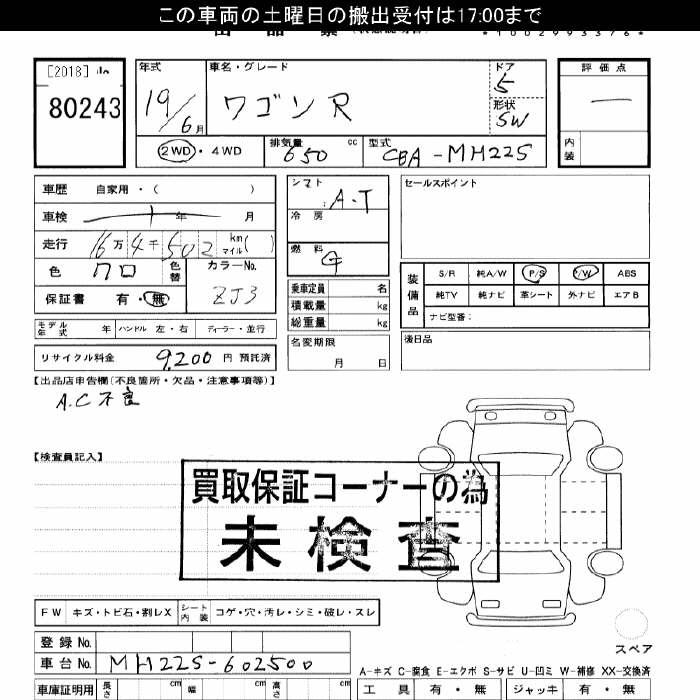 この車両の土曜日の搬出受付は17:00まで
*1002993376*
[2018]
80243
年式
19/6月
車名・グレード
ワゴンR
ドア
5
形状
SW
評価点
—
内装
2WD・4WD
排気量
650 cc
型式
CBA-MH22S
車歴 自家用・( )
車検 年 月
走行 16万4千502 km マイル( )
色 クロ 色替
カラーNo.
ZJ3
保証書 有・無
シフト
A-T
冷房
燃料
G
乗車定員 名
積載量 kg
総重量 kg
セールスポイント
装備品
S/R 純A/W P/S P/W ABS
純TV 純ナビ 革シート 外ナビ エアB
ナビ型番:
モデル年式 年 ハンドル 左・右 ディーラー・並行
名変期限
月 日
後日品
リサイクル料金 9,200 円 預託済
【出品店申告欄(不良箇所・欠品・注意事項等)】
A.C不良
【検査員記入】
買取保証コーナーの為
未検査
FW キズ・トビ石・割レX シート内装 コゲ・穴・汚レ・シミ・破レ・スレ
スペア
登録No.
車台No. MH22S-602500
A-キズ C-腐食 E-エクボ S-サビ U-凹ミ W-補修 XX-交換済
車庫証明用 長さ cm 幅 cm 高さ cm
工具 有・無 ジャッキ 有・無